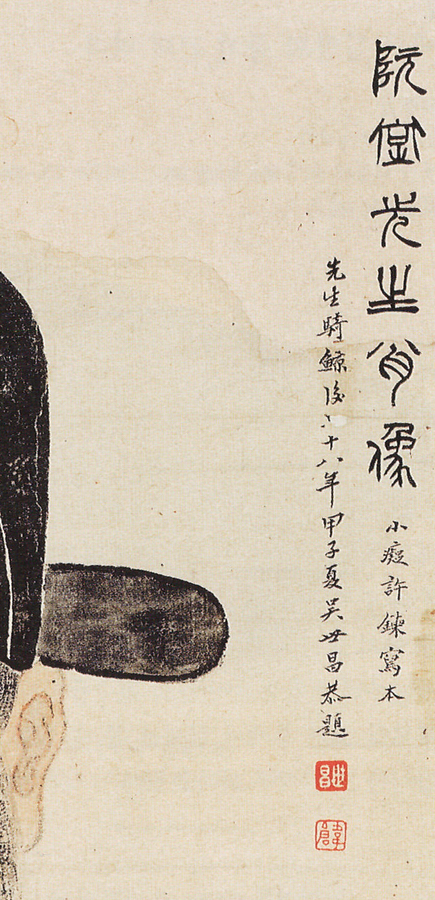 阮堂先生肖像
小癡許鍊寫本
先生騎鯨後六十八年甲子夏吳世昌恭題
世昌